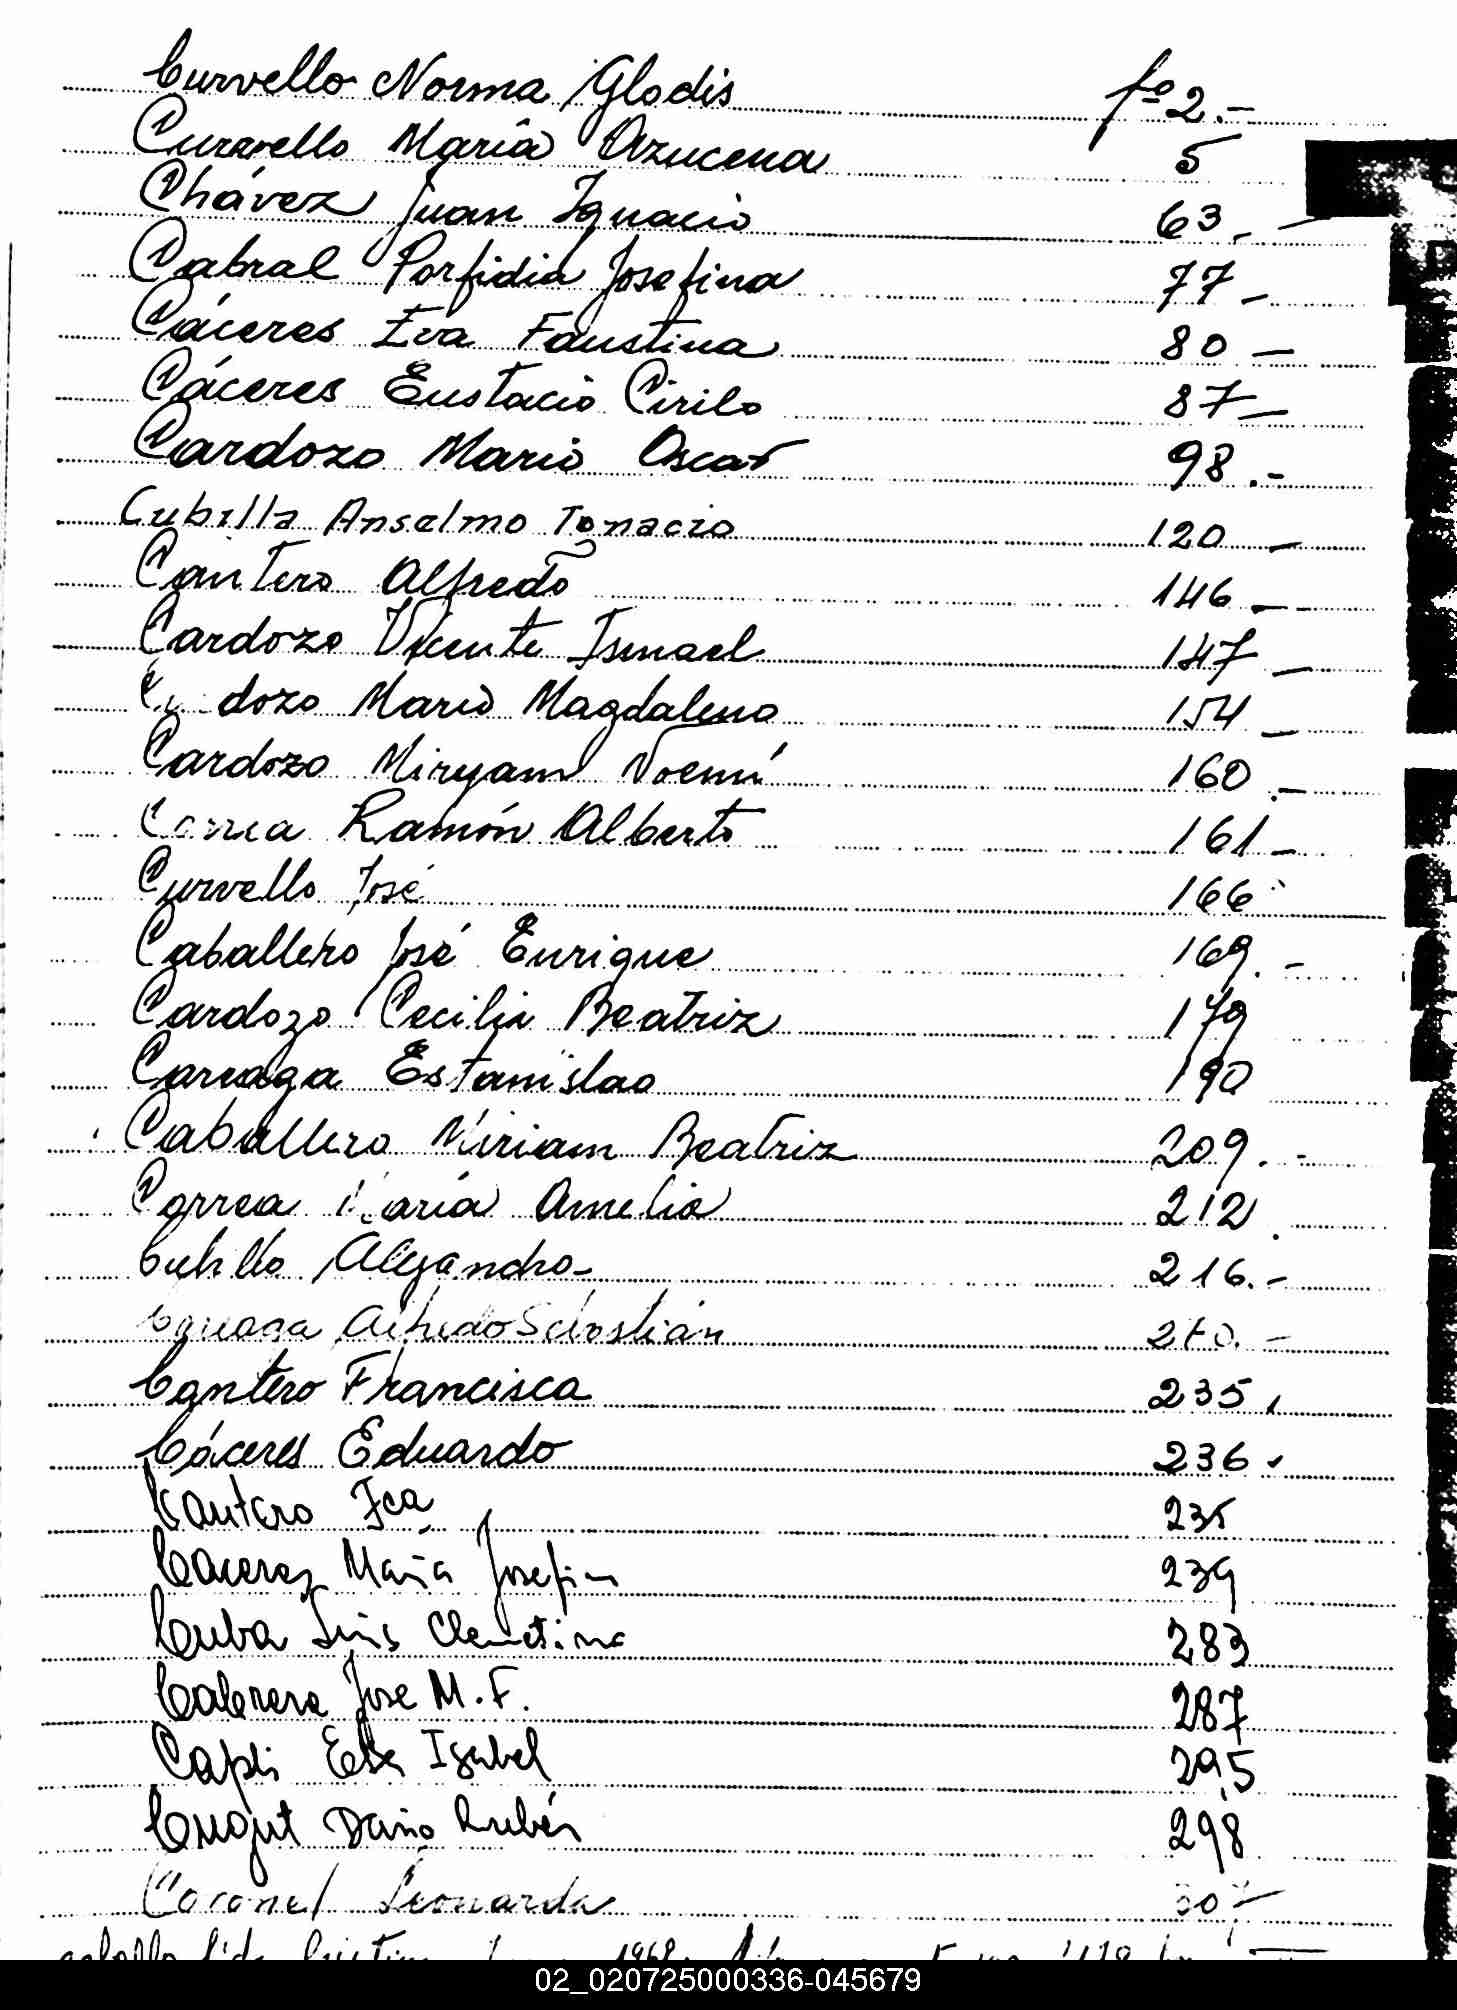 Curvello Norma Gladis fº 2.-
Curvello María Azucena 5
Chávez Juan Ignacio 63.-
Cabral Porfidia Josefina 77-
Cáceres Eva Faustina 80-
Cáceres Eustacio Cirilo 87-
Cardozo Mario Oscar 98.-
Cubilla Anselmo Ignacio 120-
Cantero Alfredo 146-
Cardozo Vicente Ismael 147-
dozo Mario Magdaleno 154-
Cardozo Miryam Noemí 160.-
Correa Ramón Alberto 161-
Curvello José 166
Caballero José Enrique 169.-
Cardozo Cecilia Beatriz 179
Careaga Estanislao 190
Caballero Miriam Beatriz 209.-
Correa María Amelia 212.
Alejandro- 216.-
Alfredo Sebastián
Cantero Francisca 235.
Cáceres Eduardo 236.
Cantero Fca 235
Caceres María Josefina 239
Cuba Luis 283
Cabrera Jose M.F. 287
Elsa Isabel 295
Darío Rubén 298
Coronel Leonarda
02_020725000336-045679